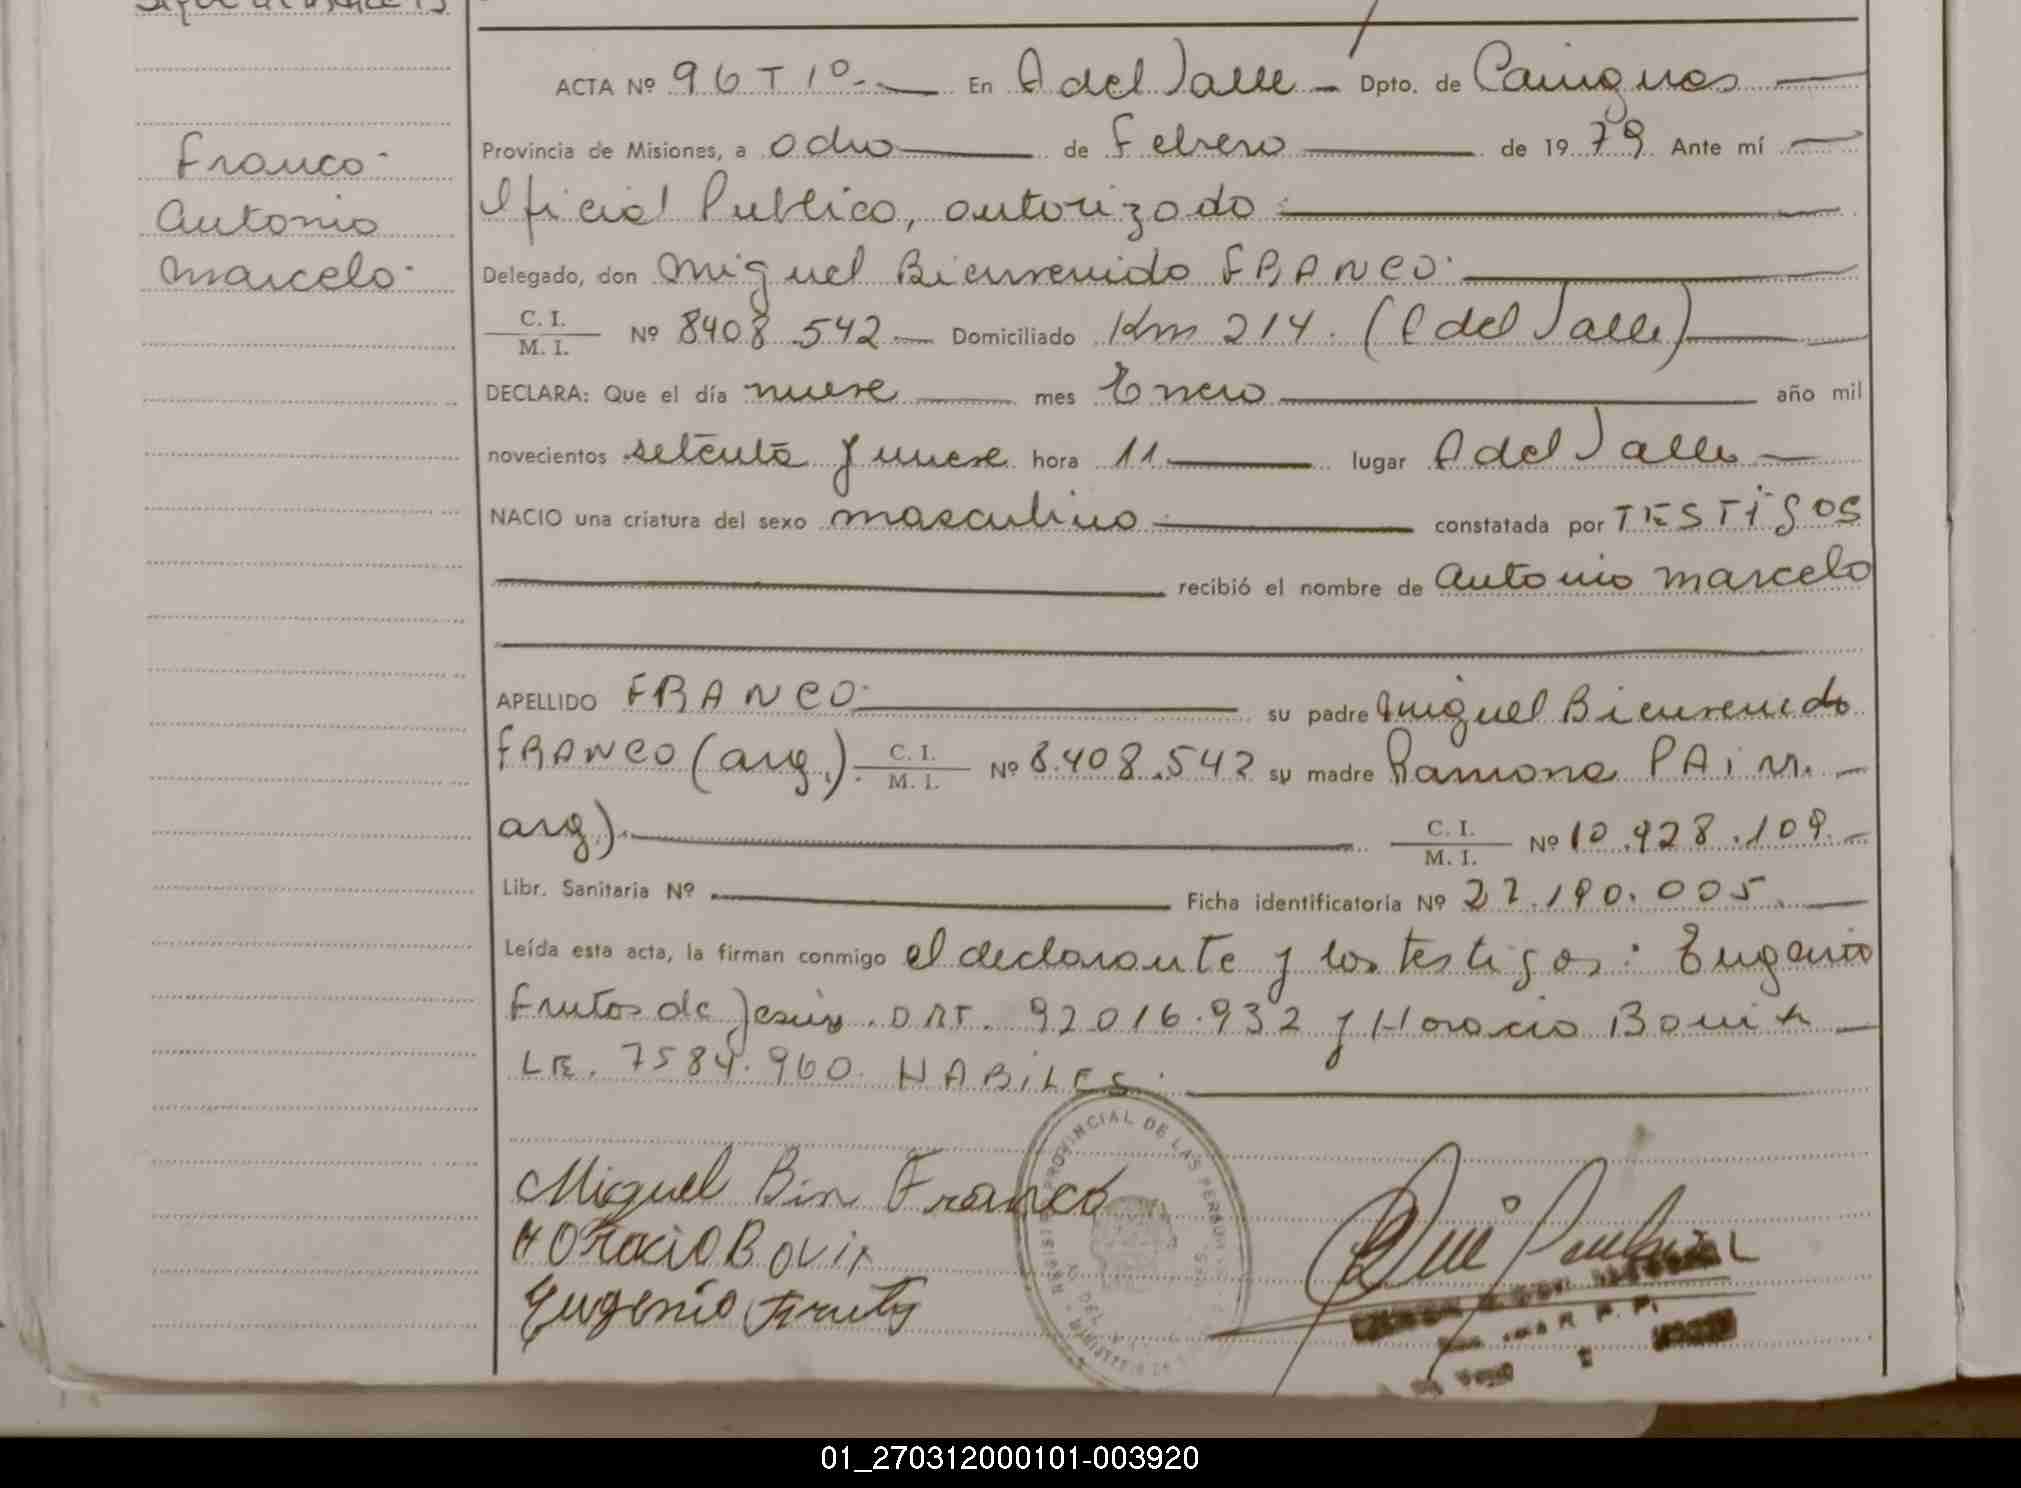 Franco
Antonio
Marcelo
ACTA Nº 96 T 1º En A del Valle Dpto. de Cainguas
Provincia de Misiones, a ocho de Febrero de 1979 Ante mí
Oficial Publico, autorizado
Delegado, don Miguel Bienvenido FRANCO
C. I. / M. I. Nº 8408.542 Domiciliado Km 214. ( del Valle)
DECLARA: Que el día nueve mes Enero año mil
novecientos setenta y nueve hora 11 lugar A del Valle
NACIO una criatura del sexo masculino constatada por TESTIGOS
recibió el nombre de Antonio Marcelo
APELLIDO FRANCO su padre Miguel Bienvenido
FRANCO (arg.) C. I. / M. I. Nº 8.408.542 su madre Ramona PAiM.
arg). C. I. / M. I. Nº 10.928.109
Libr. Sanitaria Nº Ficha identificatoria Nº 27.190.005.
Leída esta acta, la firman conmigo el declarante y los testigos: Eugenio
Frutos de Jesús. DNI. 92016.932 y Horacio Bouix
LE. 7584.960. HABiLES.
Miguel Bin Franco
Horacio Bovix
Eugenio Fruts
PROVINCIAL DE LAS PERSONAS
01_270312000101-003920